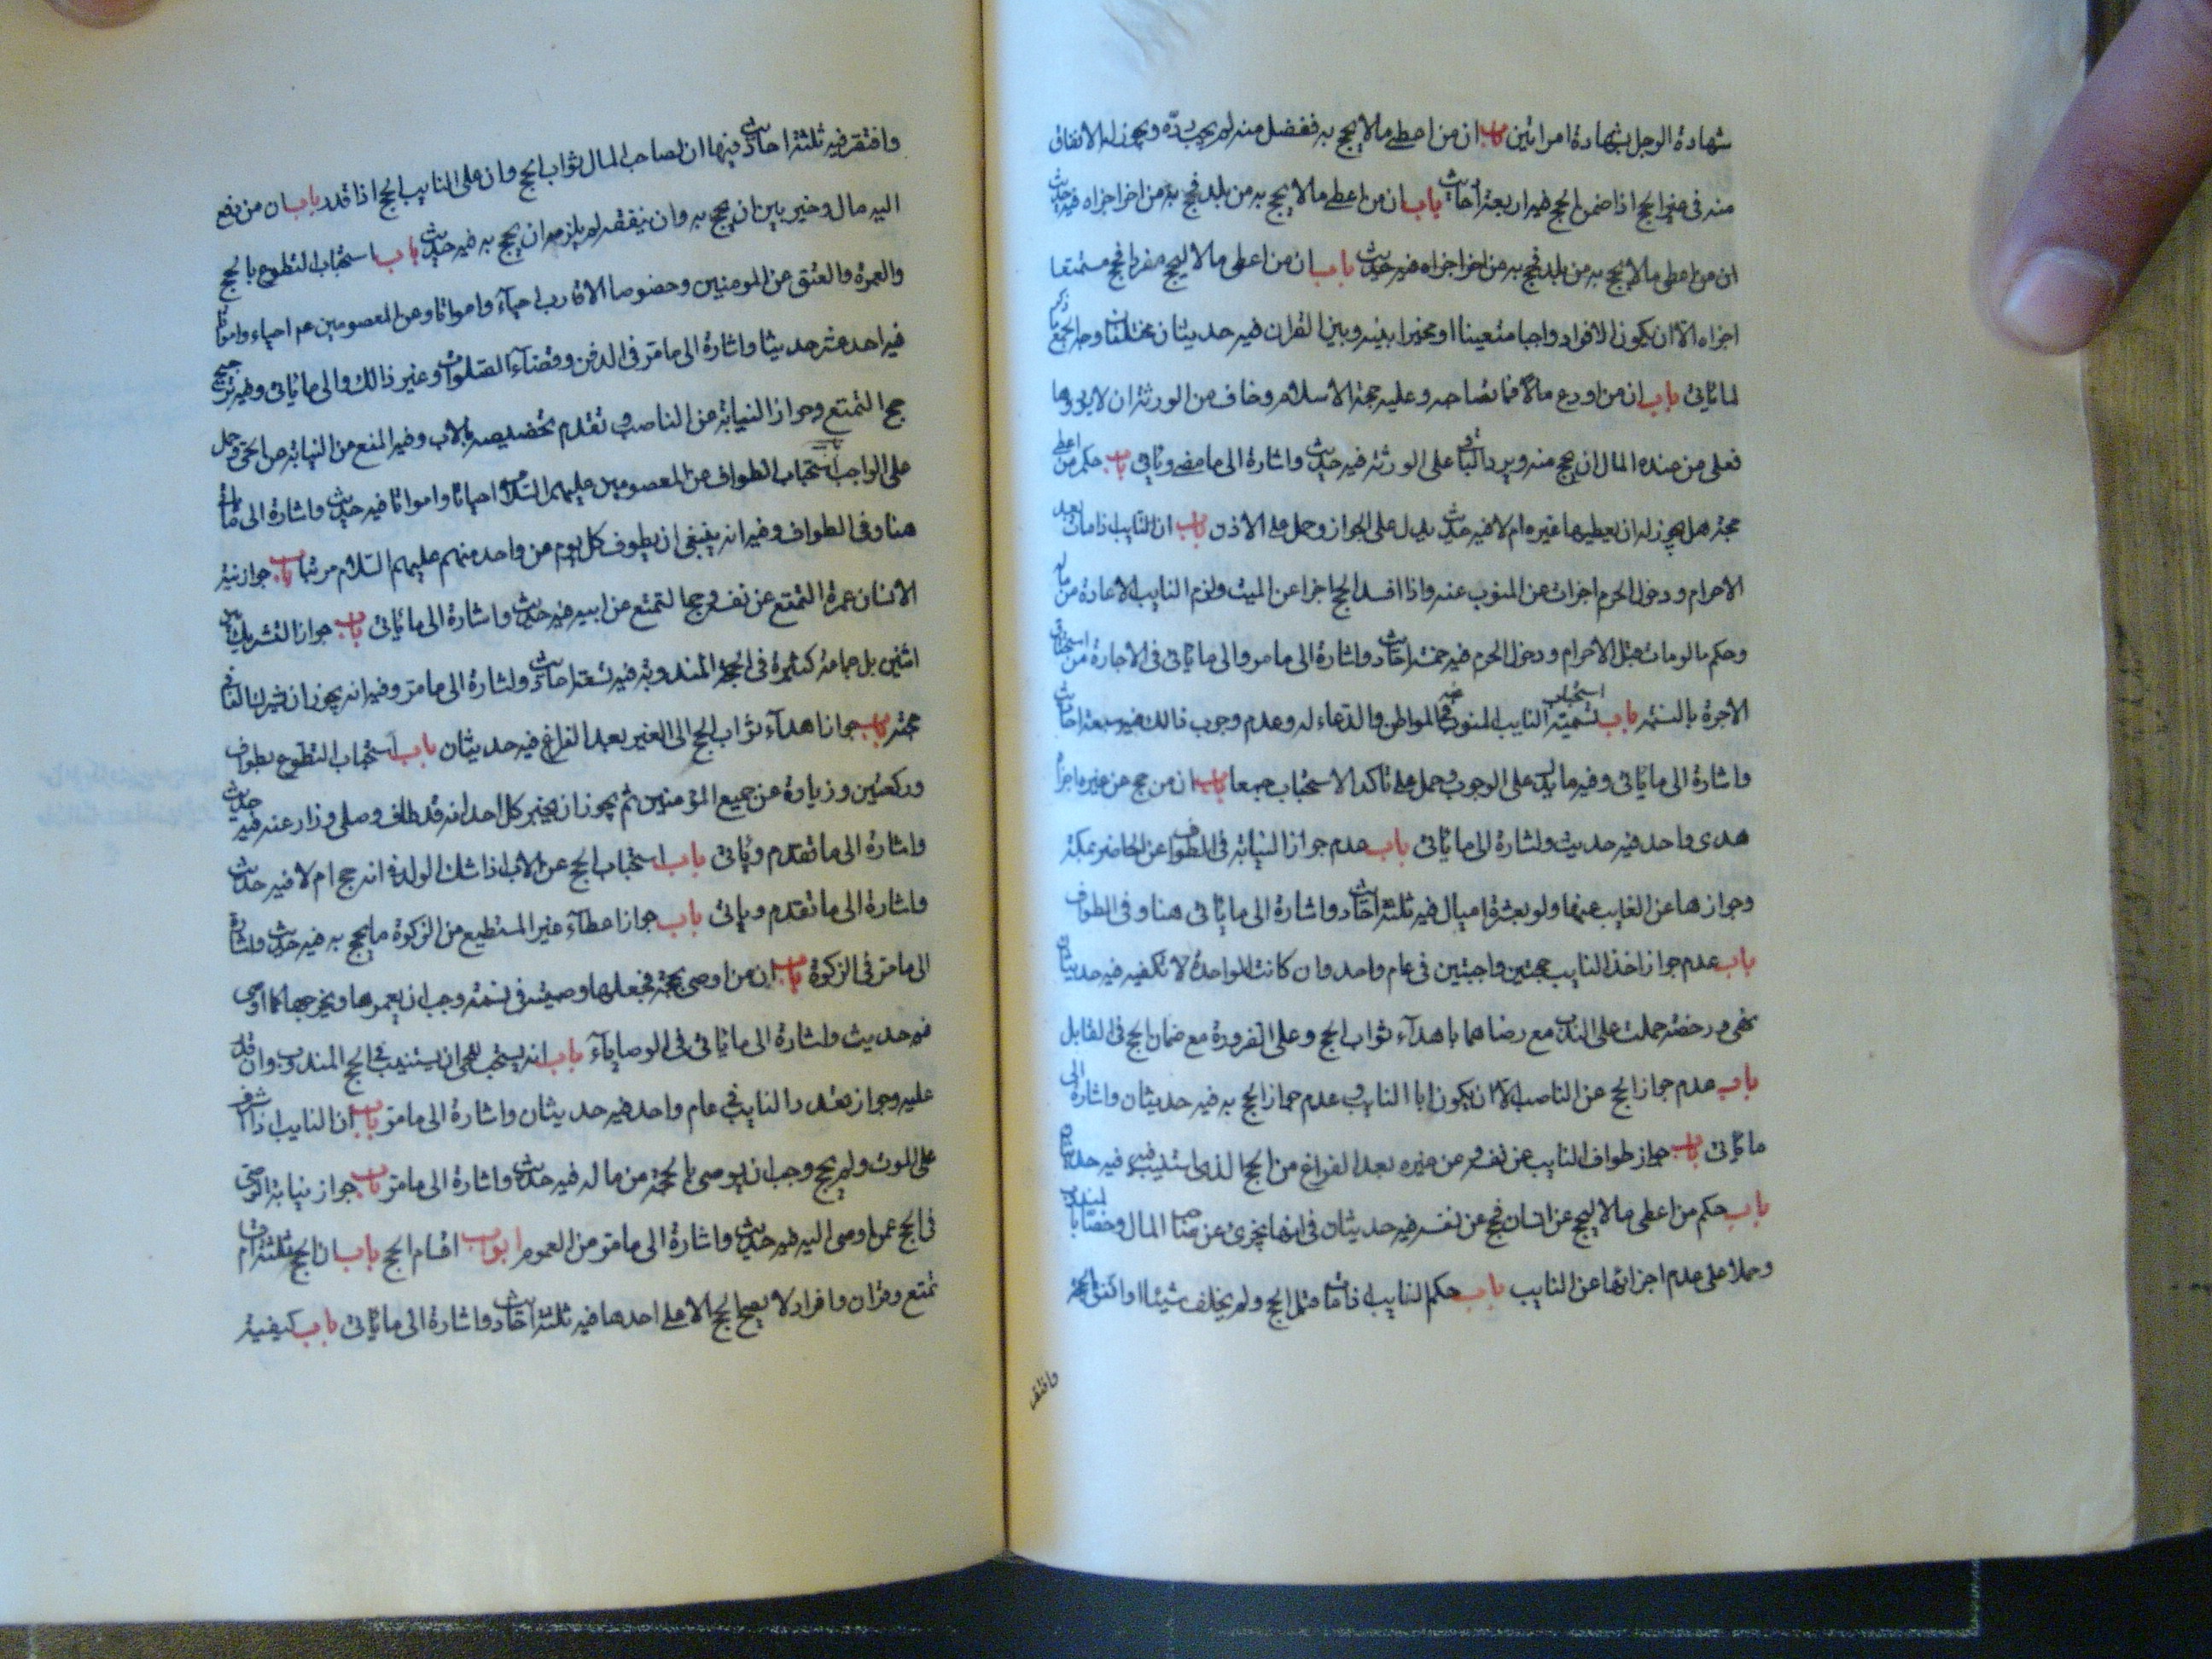 شهادة الرجل بشهادة امراتين باب ان من اعطى مالا يحج به ففضل منه لم يجب ردّه ويجوز له الانفاق
منه فى غير الحج اذا ضمن الحج فيه اربعة احاديث باب ان من اعطى مالا يحج به من بلد فحج به من اخر اجزاه فيه حديث
ان من اعطى مالا يحج به من بلد فحج به من اخر اجزاه فيه حديث باب ان من اعطى مالا ليحج مفردا فحج متمتعا
اجزاه الّا ان يكون الافراد واجبا متعينا او مخيرا بينه وبين القران فيه حديثان مختلفان وجه الجمع ما ذكر
لما ياتى باب ان من اودع مالا فمات صاحبه وعليه حجة الاسلام وخاف من الورثة ان لا يودوها
فعلى من عنده المال ان يحج منه ويرد الباقى على الورثة فيه حديث واشارة الى ما مضى وياتى باب حكم من اعطى
حجة هل يجوز له ان يعطيها غيره ام لا فيه حديث يدل على الجواز وحمل على الاذن باب ان النايب اذا مات بعد
الاحرام ودخول الحرم اجزات عن المنوب عنه واذا افسد الحج اجزا عن الميت ولزم النايب الاعادة من ماله
وحكم ما لو مات قبل الاحرام ودخول الحرم فيه خمسة احاديث واشارة الى ما مر والى ما ياتى فى الاجارة من استحقاق
الاجرة بالنسبة باب استحباب تسمية النايب المنوب عنه فى المواطن والدعاء له وعدم وجوب ذالك فيه سبعة احاديث
واشارة الى ما ياتى وفيه ما يدل على الوجوب وحمل على تاكد الاستحباب جمعا باب ان من حج عن غيره اجزا
هدى واحد فيه حديث واشارة الى ما ياتى باب عدم جواز النيابة فى الطواف عن الحاضر بمكة
وجوازها عن الغايب عنها ولو بعشرة اميال فيه ثلثة احاديث واشارة الى ما ياتى هنا وفى الطواف
باب عدم جواز اخذ النايب حجتين واجبتين فى عام واحد وان كانت الواحدة لا تكفيه فيه حديثان
نهى ورخصة حملت على الندب مع رضاهما باهداء ثواب الحج وعلى الضرورة مع ضمان الحج فى القابل
باب عدم جواز الحج عن الناصب الّا ان يكون ابا النايب وعدم جواز الحج به فيه حديثان واشارة الى
ما ياتى باب جواز طواف النايب عن نفسه وعن غيره بعد الفراغ من الحج الذى استنيب فيه فيه حديثان
باب حكم من اعطى مالا ليحج عن انسان فحج عن نفسه فيه حديثان فى انها تجزى عن صاحب المال وخصتا بالندب
وحملا على عدم اجزائها عن النايب باب حكم النايب اذا مات قبل الحج ولم يخلف شيئا او انفق الحجة
وافتقر
وافتقر فيه ثلثة احاديث فيها ان لصاحب المال ثواب الحج وان على النايب الحج اذا قدر باب ان من دفع
اليه مال وخير بين ان يحج به وان ينفقه لم يلزمه ان يحج به فيه حديث باب استحباب التطوع بالحج
والعمرة والعتق عن المومنين وخصوصا الاقارب احياء وامواتا وعن المعصومين عم احياء وامواتا
فيه احد عشر حديثا واشارة الى ما مرّ فى الدفن وقضاء الصلوات وغير ذالك والى ما ياتى وفيه ترجيح
حج التمتع وجواز النيابة عن الناصب وتقدم تخصيصه بالاب وفيه المنع من النيابة عن الحى وحمل
على الواجب باب استحباب الطواف عن المعصومين عليهم السلام احياءًا وامواتا فيه حديث واشارة الى ما ياتى
هنا وفى الطواف وفيه انه ينبغى ان يطوف كل يوم عن واحد منهم عليهم السلام مرتبا باب جواز نية
الانسان عمرة التمتع عن نفسه وحج التمتع عن ابيه فيه حديث واشارة الى ما ياتى باب جواز التشريك بين
اثنين بل جماعة كثيرة فى الحجة المندوبة فيه تسعة احاديث واشارة الى ما مرّ وفيه انه يجوز ان يشرك الفا فى
حجته باب جواز اهداء ثواب الحج الى الغير بعد الفراغ فيه حديثان باب استحباب التطوع بطواف
وركعتين وزيارة عن جميع المؤمنين ثم يجوز ان يخبر كل احد انه قد طاف وصلى وزار عنه فيه حديث
واشارة الى ما تقدم وياتى باب استحباب الحج عن الاب اذا شك الولد فى انه حج ام لا فيه حديث
واشارة الى ما تقدم وياتى باب جواز اعطاء غير المستطيع من الزكوة ما يحج به فيه حديث واشارة
الى ما مرّ فى الزكوة باب ان من اوصى بحجة فجعلها وصيه فى نسمة وجب ان يغرمها ويخرجها كما اوصى
فيه حديث واشارة الى ما ياتى فى الوصايا باب انه يستحب للحى ان يستنيب فى الحج المندوب وان قدر
عليه وجواز تعدد النايب فى عام واحد فيه حديثان واشارة الى ما مرّ باب ان النايب اذا اشرف
على الموت ولم يحج وجب ان يوصى بالحجة من ماله فيه حديث واشارة الى ما مرّ باب جواز نيابة الوصى
فى الحج عمن اوصى اليه فيه حديث واشارة الى ما مرّ من العموم ابواب اقسام الحج باب ان الحج ثلثة اقسام
تمتع وقران وافراد لا يصح الحج الا على احدها فيه ثلثة احاديث واشارة الى ما ياتى باب كيفية